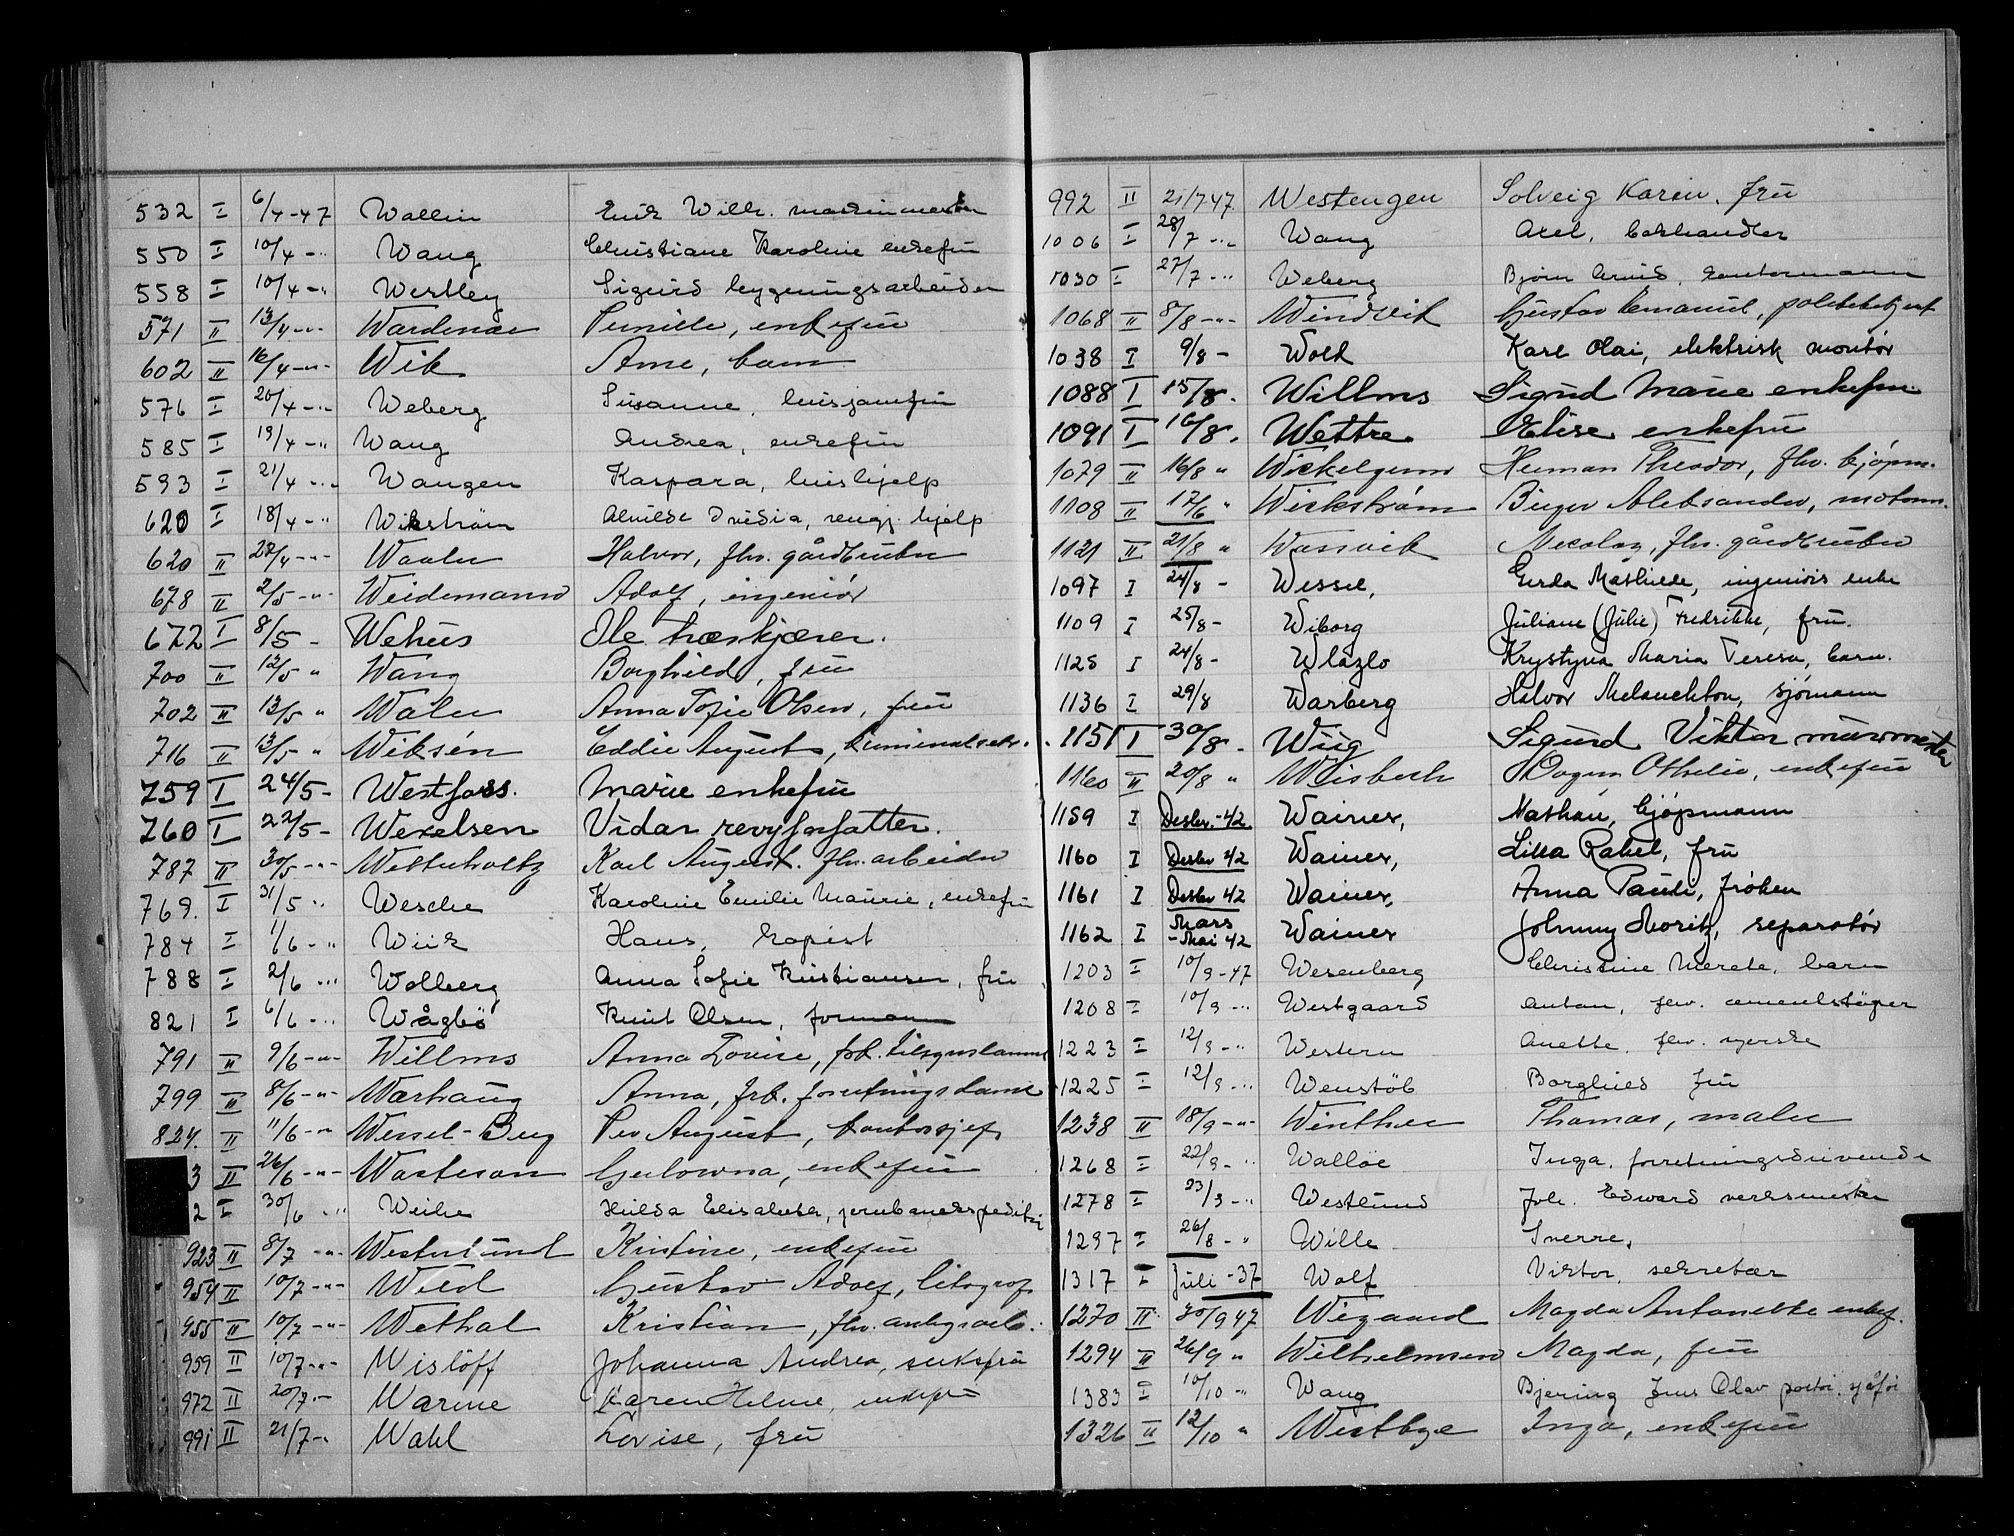 532 I 6/4-47 Wallin Erik Wilh. maskinmester
550 I 10/4 -"- Wang Christiane Karoline enkefru
558 I 10/4 -"- Westley Sigurd bygningsarbeider
571 II 13/4 -"- Wardenær Pernille, enkefru
602 II 16/4 -"- Wik Arne, barn
576 I 20/4 -"- Weberg Susanne, husjomfru
585 I 19/4 -"- Wang Andrea, enkefru
593 I 21/4 -"- Wangen Kaspara, hushjelp
620 I 18/4 -"- Wikström Alvilde Ovidia, rengj. hjelp
620 II 28/4 -"- Waaler Halvor, fhv. gårdbruker
678 II 2/5 -"- Weidemann Adolf, ingeniør
672 I 8/5 - Wehus Ole træskjærer.
700 II 12/5 " Wang Borghild, fru
702 II 13/5 " Waler Anna Tofie Olsen, fru
716 II 13/5 " Wiksén Eddie August, kriminalsekr.
759 I 24/5 - Westfoss. Marie enkefru
760 I 22/5 - Wexelsen Vidar revyforfatter.
787 II 30/5 -"- Westerholtz Karl August. fhv. arbeider
769. I 31/5 " Wesche Karoline Emilie Maurie, enkefru
784 I 1/6 -" Wiik Hans, kopist
788 I 2/6 -"- Wolberg Anna Sofie Kristiansen, fru
821 I 6/6 -"- Wågbø Knut Olsen, formann
791 II 9/6 -"- Willms Anna Lovise, frk.
799 II 8/6 -"- Warhaug Anna, frk. forretningsdame
824. II 11/6 -"- Wessel-Berg Per August, kontorsjef
3 II 26/6 -"- Wasteson enkefru
2 I 30/6 -"- Weihe Hilda Elisabeth, jernbaneekspeditør
923 II 8/7 -"- Westerlund Kristine, enkefru
954 II 10/7 -"- Wild Gustav Adolf, litograf
955 II 10/7 -"- Wethal Kristian, fhv. anlegsarb.
959 II 10/7 -"- Wisløff Johanna Andrea, enkefru
972 II 20/7 -"- Warme Karen Helene, enkefr
991 II 21/7 -"- Wahl Lovise, fru
992 II 21/7 47 Westengen Solveig Karin, fru
1006 I 28/7 -"- Wang Axel, bokhandler
1030 I 27/7 -"- Weberg Bjørn Arvid, kontormann
1068 II 8/8 -"- Windvik Gustav Emanuel, politibetjent
1038 I 9/8 - Wold Karl Olai, elektrisk montør
1088 I 15/8. Willms Sigrid Marie enkefru.
1091 I 16/8. Wettre Elise enkefru
1079 II 16/8 " Wickelgren Herman Theodor, fhv. kjøpm.
1108 II 17/6 " Wickstrøm Birger Aleksander, motorm.
1121 II 21/8 " Wassvik Nicolay, fhv. gårdbruker
1097 I 24/8 - Wessel, Gerda Mathilde, ingeniørs enke
1109 I 25/8 - Wiborg Juliane (Julie) Fredrikke, fru.
1125 I 24/8 - Wlazlo Krystyna Maria Teresa, barn.
1136 I 29/8 Warberg Halvor Melanchton, sjømann
1151 I 30/8 - Wiig Sigurd Viktor murmester
1160 II 20/8 " Weisbech Dagm Othelie, enkefru
1159 I Desbr.-42 Wainer, Nathan, kjøpmann
1160 I Desbr 42 Wainer, Lilla Rakel, fru
1161 I Desbr 42 Wainer, Anna Pauli, frøken
1162 I Mars - Mai 42 Wainer Johnny Moritz, reparatør
1203 I 10/9 -47 Wesenberg Christine Merete, barn
1208 I 10/9 -"- Westgaard Anton, fhv. cementstøper
1223 I 12/9 -" Western Anette, fhv. syerske
1225 I 12/9 -"- Wenstöb Borghild fru
1238 II 18/9 -"- Winther Thomas, maler
1268 I 22/9 -" Walløe Inga, forretningsdrivende
1278 I 23/9 -" Westlund Joh. Edward verksmester
1297 I 26/8 -" Wille Sverre,
1317 I Juli -37 Wolf Viktor, sekretær
1270 II 30/9 47 Wigaard Magda Antonette enkef.
1294 II 26/9 " Wilhelmsen Magda, fru
1383 I 10/10 " Wang Bjering Jens Olav sjåfør
1326 II 12/10 " Westbye Inga, enkefru